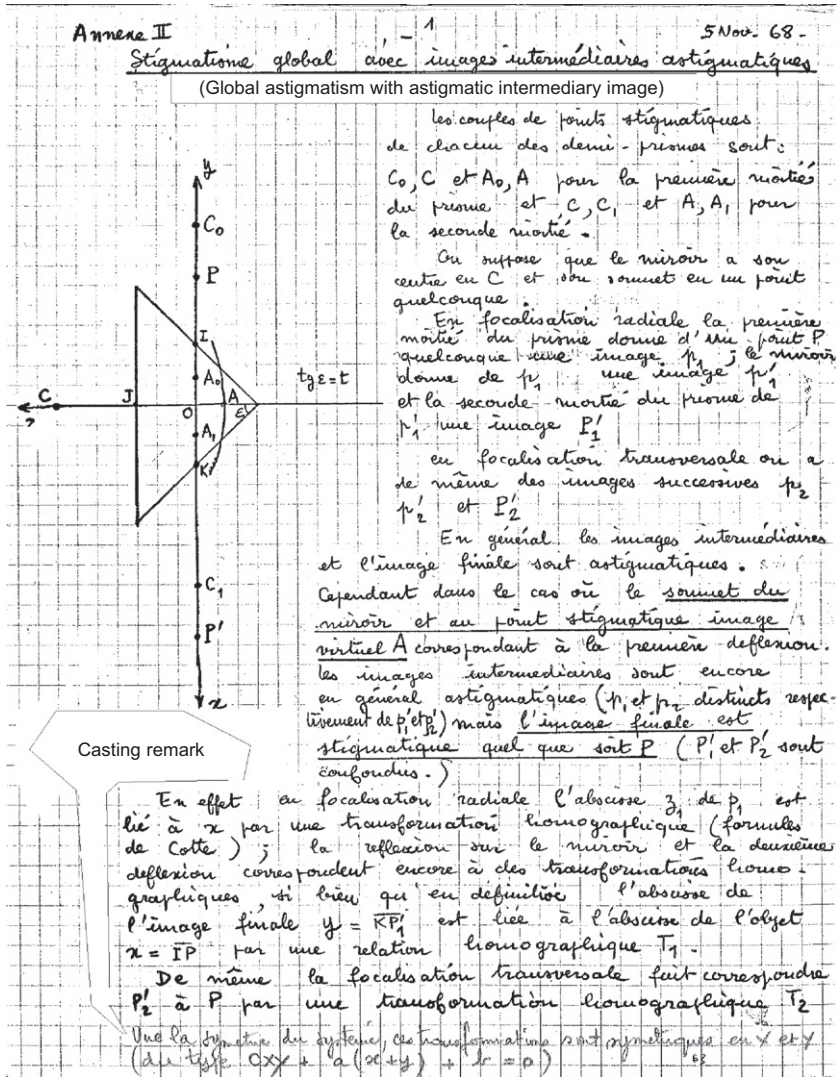 Annexe II
- 1
5 Nov. 68 -
Stigmatisme global avec images intermédiaires astigmatiques
(Global astigmatism with astigmatic intermediary image)
les couples de points stigmatiques
de chacun des demi-prismes sont :
C₀, C et A₀, A pour la première moitié
du prisme et C, C₁ et A, A₁ pour
la seconde moitié.
On suppose que le miroir a son
centre en C et son sommet en un point
quelconque.
En focalisation radiale la première
moitié du prisme donne d'un point P
quelconque une image p₁ ; le miroir
donne de p₁ une image p'₁
et la seconde moitié du prisme de
p'₁ une image P'₁
en focalisation transversale on a
de même des images successives p₂
p'₂ et P'₂
En général les images intermédiaires
et l'image finale sont astigmatiques.
Cependant dans le cas où le sommet du
miroir et au point stigmatique image
virtuel A correspondant à la première deflexion.
les images intermediaires sont encore
en général astigmatiques (p₁ et p₂ distincts respec-
tivement de p'₁ et p'₂) mais l'image finale est
stigmatique quel que soit P (P'₁ et P'₂ sont
confondus.)
y
C₀
P
I
A₀
tg ε = t
C
J
O
A
ε
z
A₁
K
C₁
P'
x
Casting remark
En effet en focalisation radiale l'abscisse z₁ de p₁ est
lié à x par une transformation homographique (formules
de Cotte) ; la reflexion sur le miroir et la deuxième
deflexion correspondent encore à des transformations homo-
graphiques, si bien qu'en définitive l'abscisse de
l'image finale y = KP'₁ est liée à l'abscisse de l'objet
x = IP par une relation homographique T₁.
De même la focalisation transversale fait correspondre
P'₂ à P par une transformation homographique T₂
Vue la symetrie du système, ces transformations sont symetriques en X et Y
(du type cxy + a(x+y) + b = 0)
63